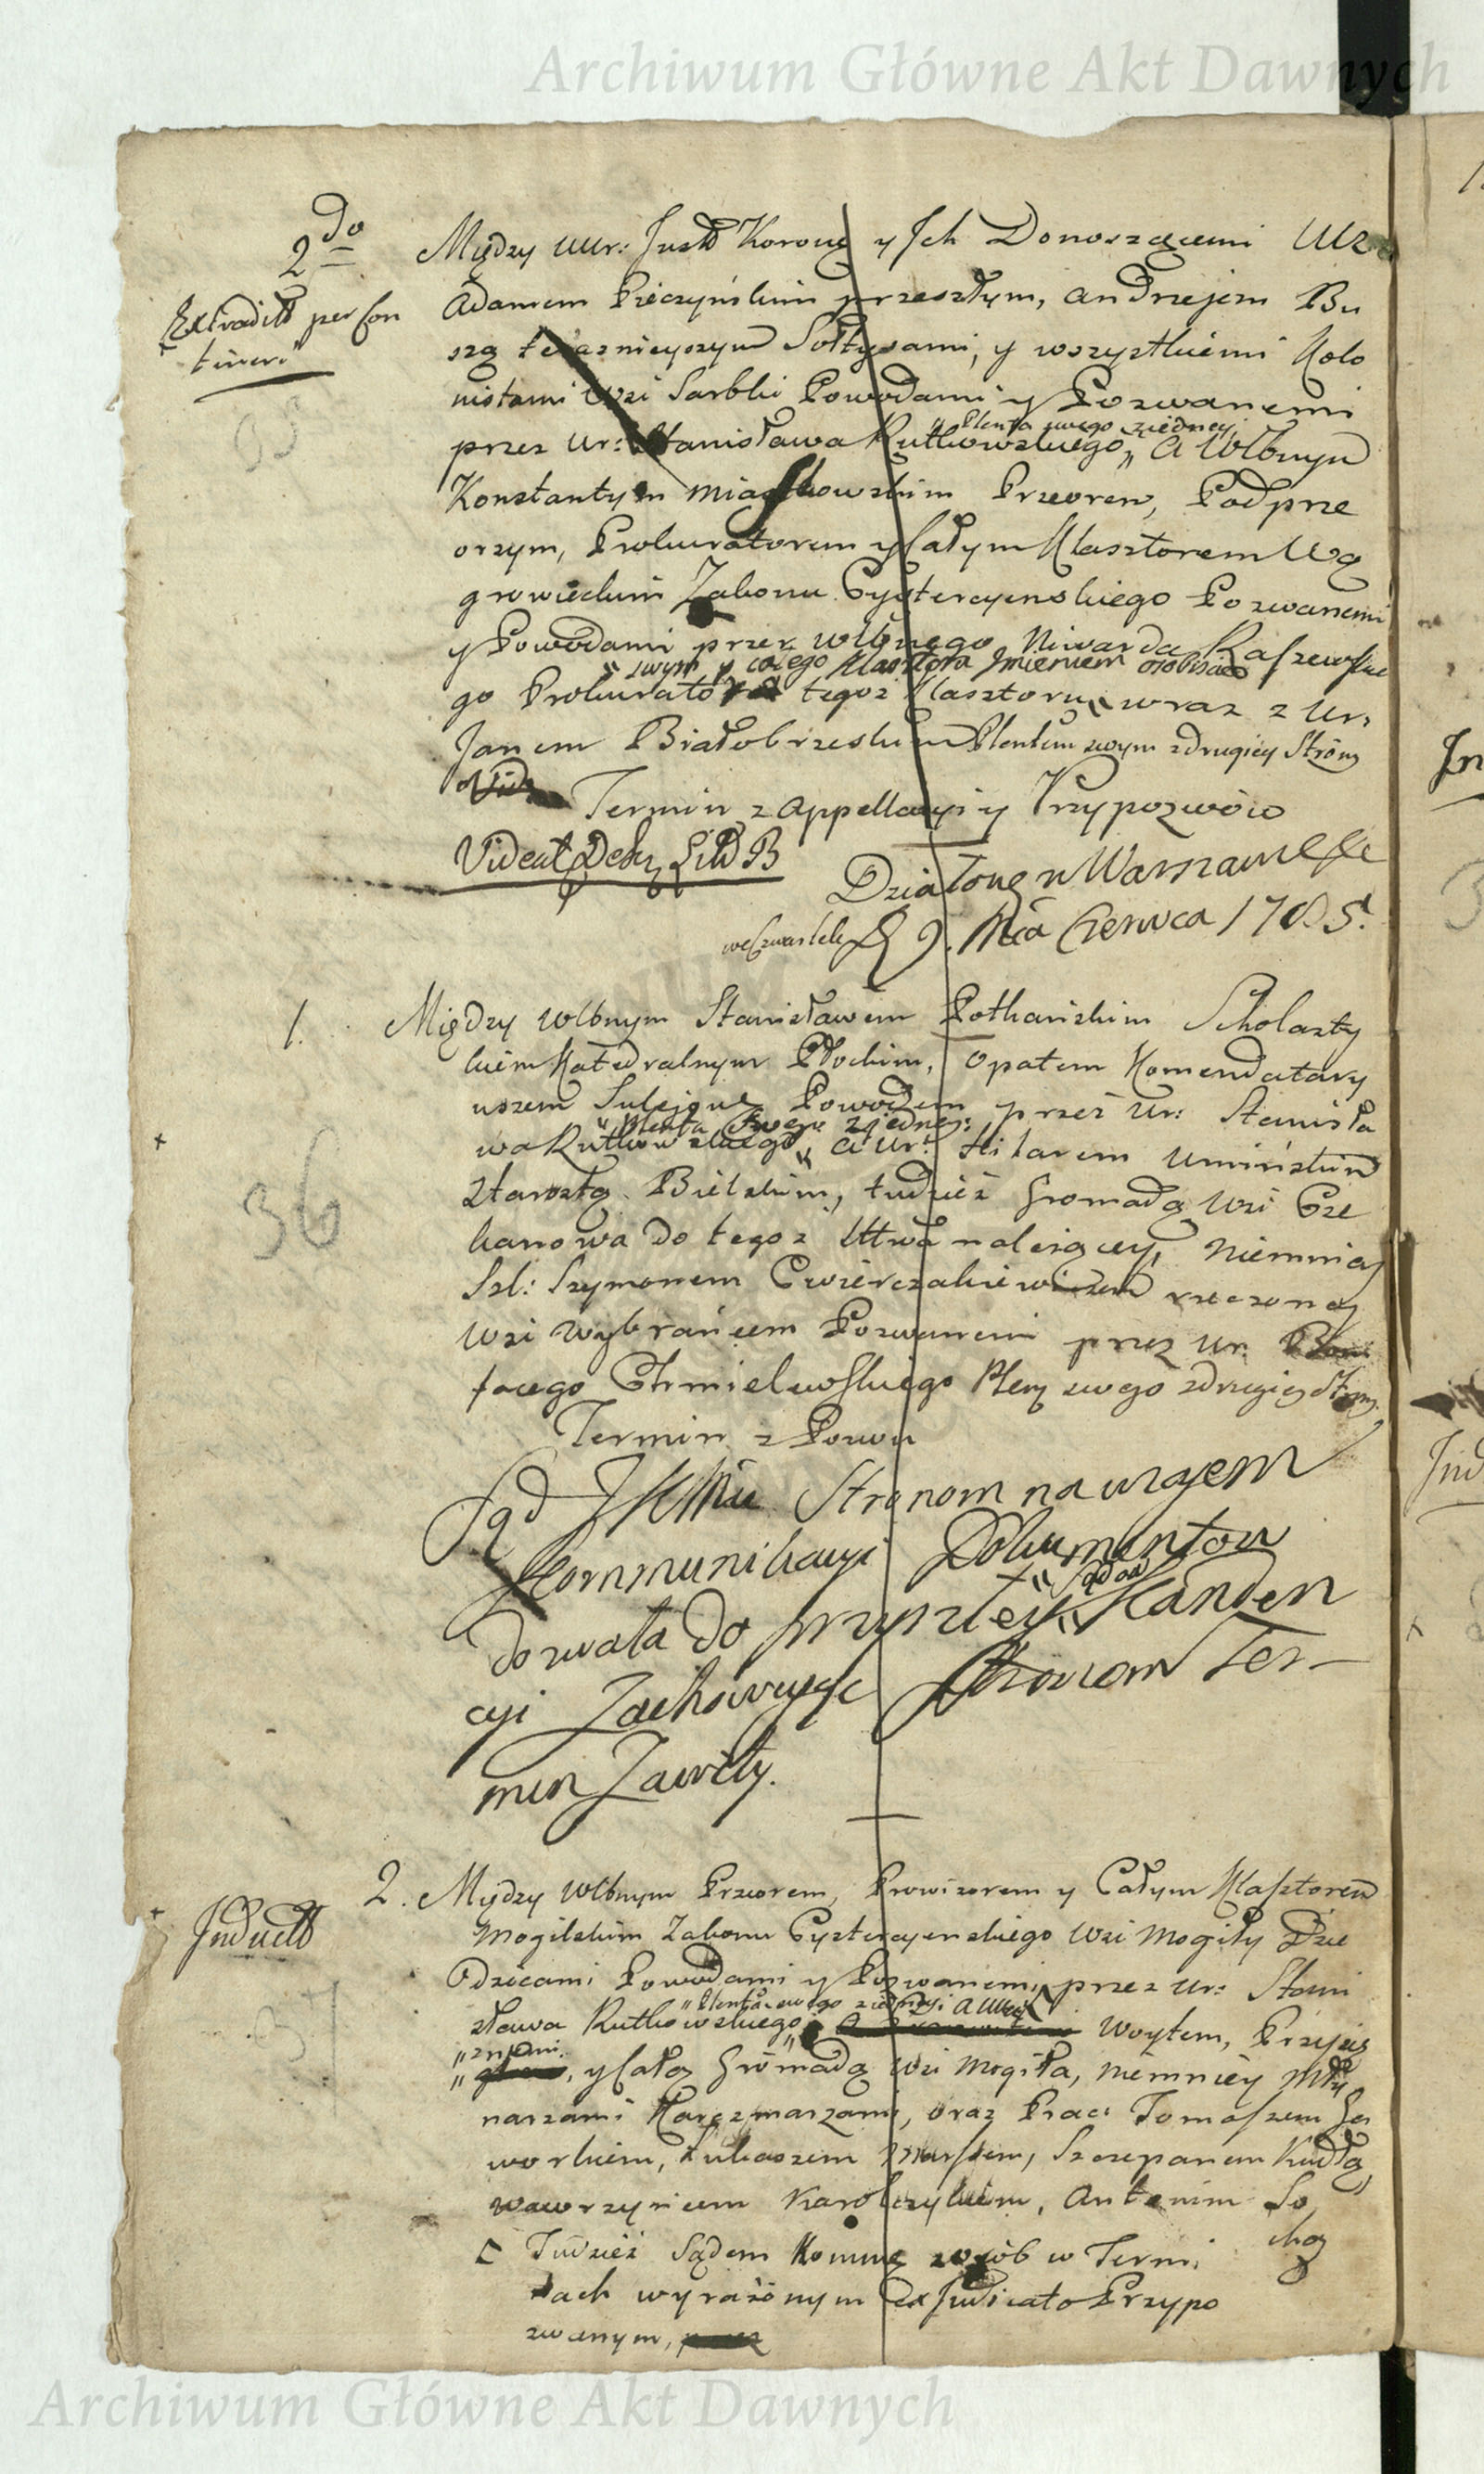 Archiwum Główne Akt Dawnych
2do
Między Uur: Justō Koroną y Jch Donoszącemi Ur
Extraditō per Con
Adamem Pieczyńskim przeszłym, Andrzejem Bu
szą teraznieyszym Sołtysami, y wszystkiemi Kolo
nistami Wsi Sarbki Powodami y Pozwanemi
„Plenta swego ziedney
przez Ur: Stanisława Rutkowskiego„ a Wlbnym
Konstantym Miaskowskim Przeorem, Podprze
orzym, Prokuratorem y Całym Klasztorem Wą
growieckim Zakonu Cystercyenskiego Pozwanemi
y Powodami przez Wlbnego Niwarda Raszewskie
„swym y całego Klasztora Jmieniem osobiście
go Prokuratora tegoz Klasztoru„ wraz z Ur:
Janem Białobrzeskim Plentem swym zdrugiey Strony
Termin z Appellacyi y Przypozwów
Videat Dekr Lit B
Działo się w Warszawie
we Czwartek D 9. Mca Czerwca 1785.
1. Między Wlbnym Stanisławem Pothańskim Scholasty
kiem Katedralnym Płockim, Opatem Komendatary
uszem Sulejow Powodem przez Ur: Stanisła
„Plenta swego ziedney:
wa Rutkowskiego„ a Ur: Hilarem Umińskim
Starostą Bielskim, tudzież Gromadą Wsi Cze
kanowa do tegoz Sttwa należącey, niemniey
Szl: Szymonem Cwierczakiewiczem rzeczoney
Wsi Wybrańcem Pozwanemi przez Ur:
36
Chmielewskiego Plen swego zdrugiey Strony
Termin z Pozwu
Sąd JKMci Stronom nawzajem
Kommunikacyi Dokumentow
dozwala do przyszłey„ Kanden
cyi Zachowując Stronom Ter-
min Zawity.
2. Między Wlbnym Przeorem, Prowizorem y Całym Klasztorem
Inductō
Mogilskim Zakonu Cystercyenskiego Wsi Mogiły Dzie
dzicami Powodami y Pozwanemi, przez Ur: Stani
„Plenta swego ziedney: a
sława Rutkowskiego„ Woytem, Przysię
„żnemi.
y Całą Gromadą Wsi Mogiła, niemniey Mły
narzami Karczmarzami, oraz Prac: Tomaszem Ga
workiem, Łukaszem Marszem, Szczepanem Kudłą
Wawrzyńcem Karolczykiem, Antonim So
chą
Tudzież Sądem Komme zosób w Termi
nach wyrażonym ex Judicato Przypo
zwanym,
Archiwum Główne Akt Dawnych